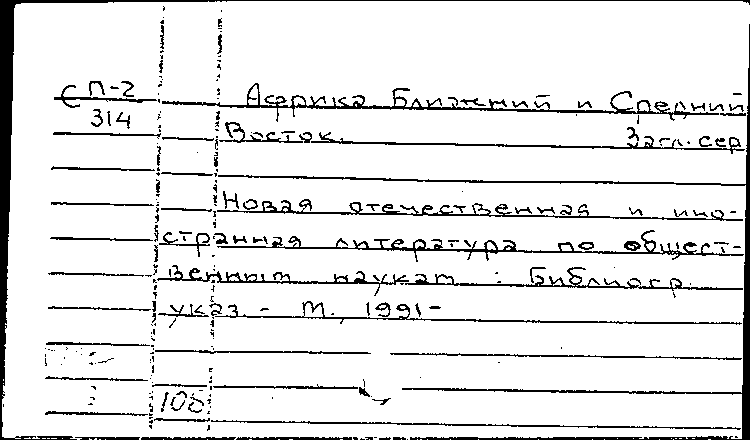 С П-2
314
Африка. Ближний и Средний
Восток. Загл. сер.
Новая отечественная и ино-
странная литература по общест-
венным наукам : Библиогр.
указ. - М., 1991-